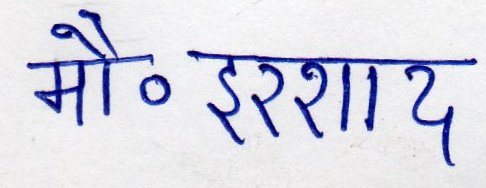 मौ० इरशाद